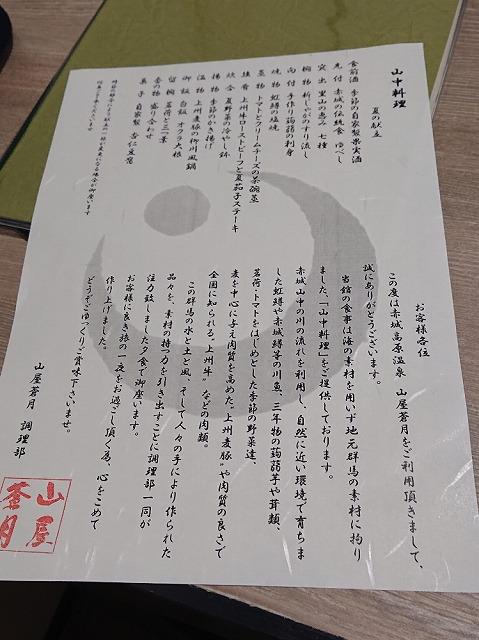 山中料理
夏の献立
食前酒 季節の自家製果実酒
先付 赤城の伝統食 ゆべし
突出 里山の恵み 七種
椀物 新じゃがのすり流し
向付 手作り蒟蒻の刺身
焼物 虹鱒の塩焼
蒸物 トマトとクリームチーズの茶碗蒸
進肴 上州牛ローストビーフと夏茄子ステーキ
炊合 夏野菜の冷やし鉢
揚物 季節のかき揚げ
温物 上州麦豚の柳川風鍋
御飯 白飯 オクラ大根
留椀 茗荷と三つ葉
香の物 盛り合わせ
菓子 自家製 杏仁豆腐
お客様各位
この度は赤城高原温泉 山屋蒼月をご利用頂きまして、
誠にありがとうございます。
当館の食事は海の素材を用いず地元群馬の素材に拘り
ました、「山中料理」をご提供しております。
赤城山中の川の流れを利用し、自然に近い環境で育ちま
した虹鱒や赤城鱒等の川魚、三年物の蒟蒻芋や茸類、
茗荷・トマトをはじめとした季節の野菜達、
麦を中心に与え肉質を高めた"上州麦豚"や肉質の良さで
全国に知られる"上州牛"などの肉類。
この群馬の水と土と風、そして人々の手により作られた
品々を、素材の持つ力を引き出すことに調理部一同が
注力致しました夕食で御座います。
お客様に良き旅の一夜をお過ごし頂く為、心をこめて
作り上げました。
どうぞごゆっくりご賞味下さいませ。
山屋蒼月 調理部
山屋
蒼月